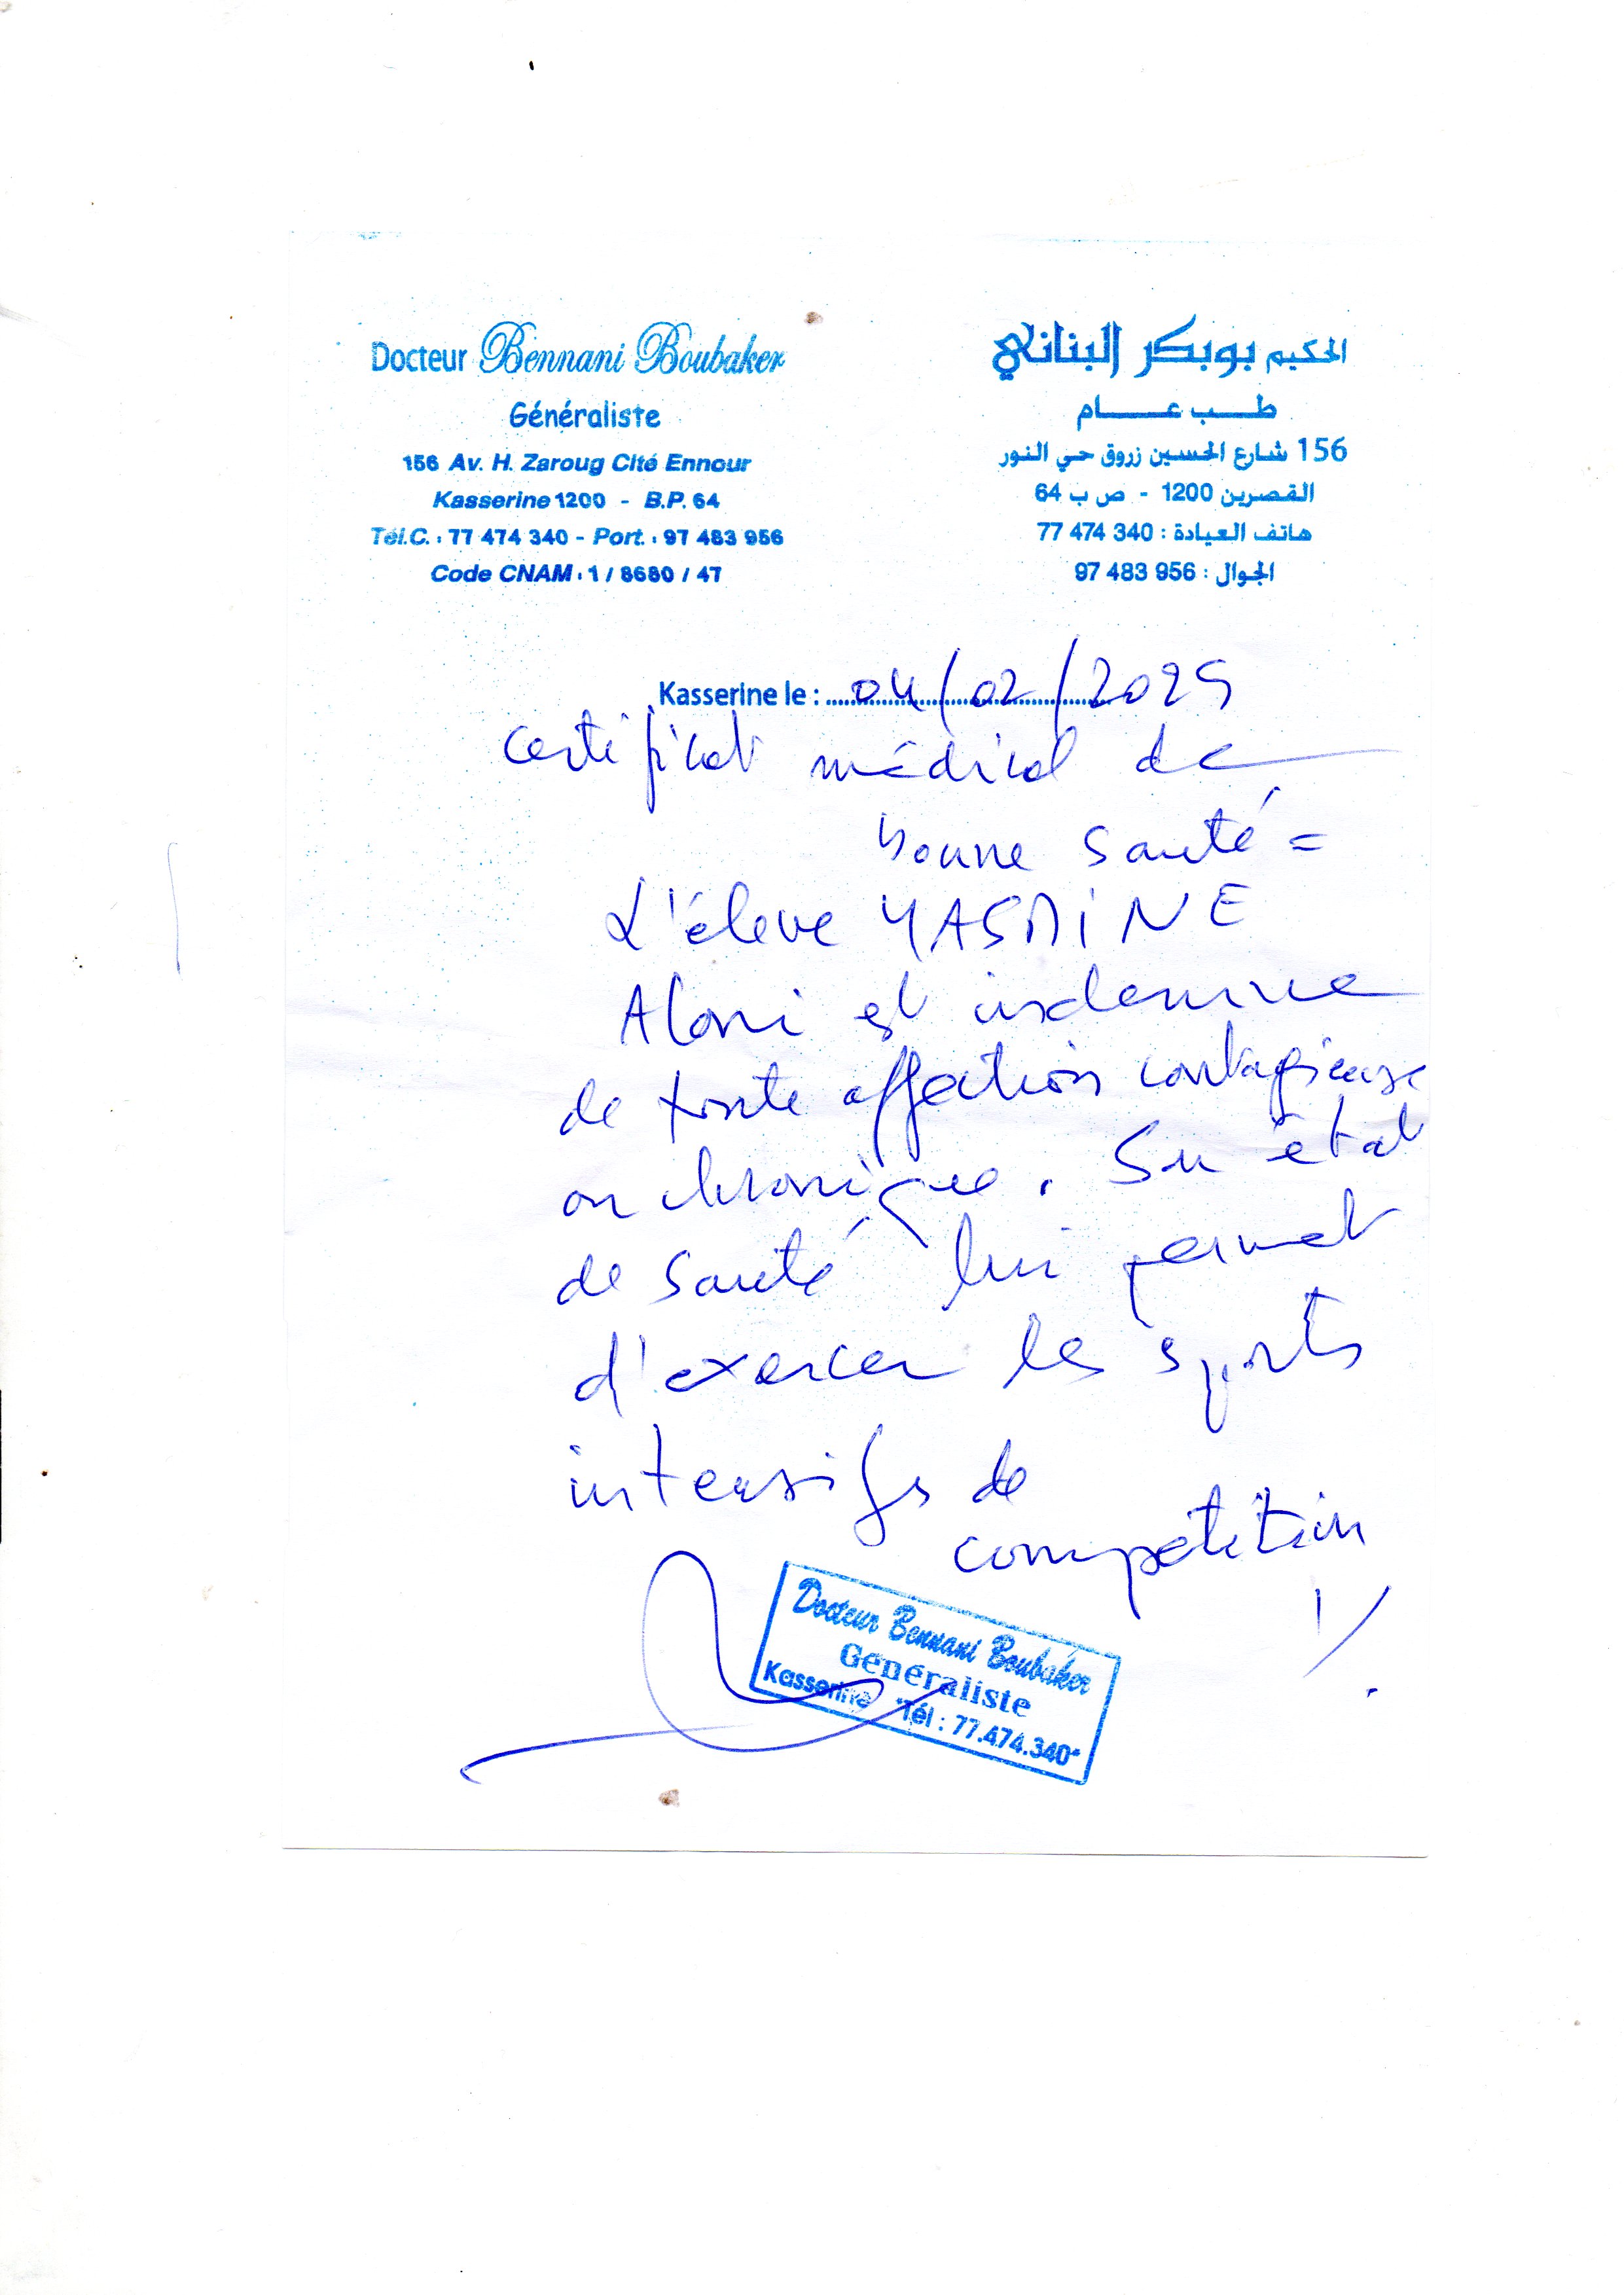 Docteur Bennani Boubaker
Généraliste
156 Av. H. Zaroug Cité Ennour
Kasserine 1200 - B.P. 64
Tél.C. : 77 474 340 - Port. : 97 483 956
Code CNAM : 1 / 8680 / 47
الحكيم بوبكر البناني
طب عام
156 شارع الحسين زروق حي النور
القصرين 1200 - ص ب 64
هاتف العيادة : 77 474 340
الجوال : 97 483 956
Kasserine le : 04/02/2025
Certificat médical de
bonne santé =
L'éleve YASMINE
est indemne
de toute affection contagieuse
ou chronique. Son état
de santé lui permet
d'exercer les sports
intensifs de
compétition
Docteur Bennani Boubaker
Généraliste
Kasserine Tél : 77.474.340